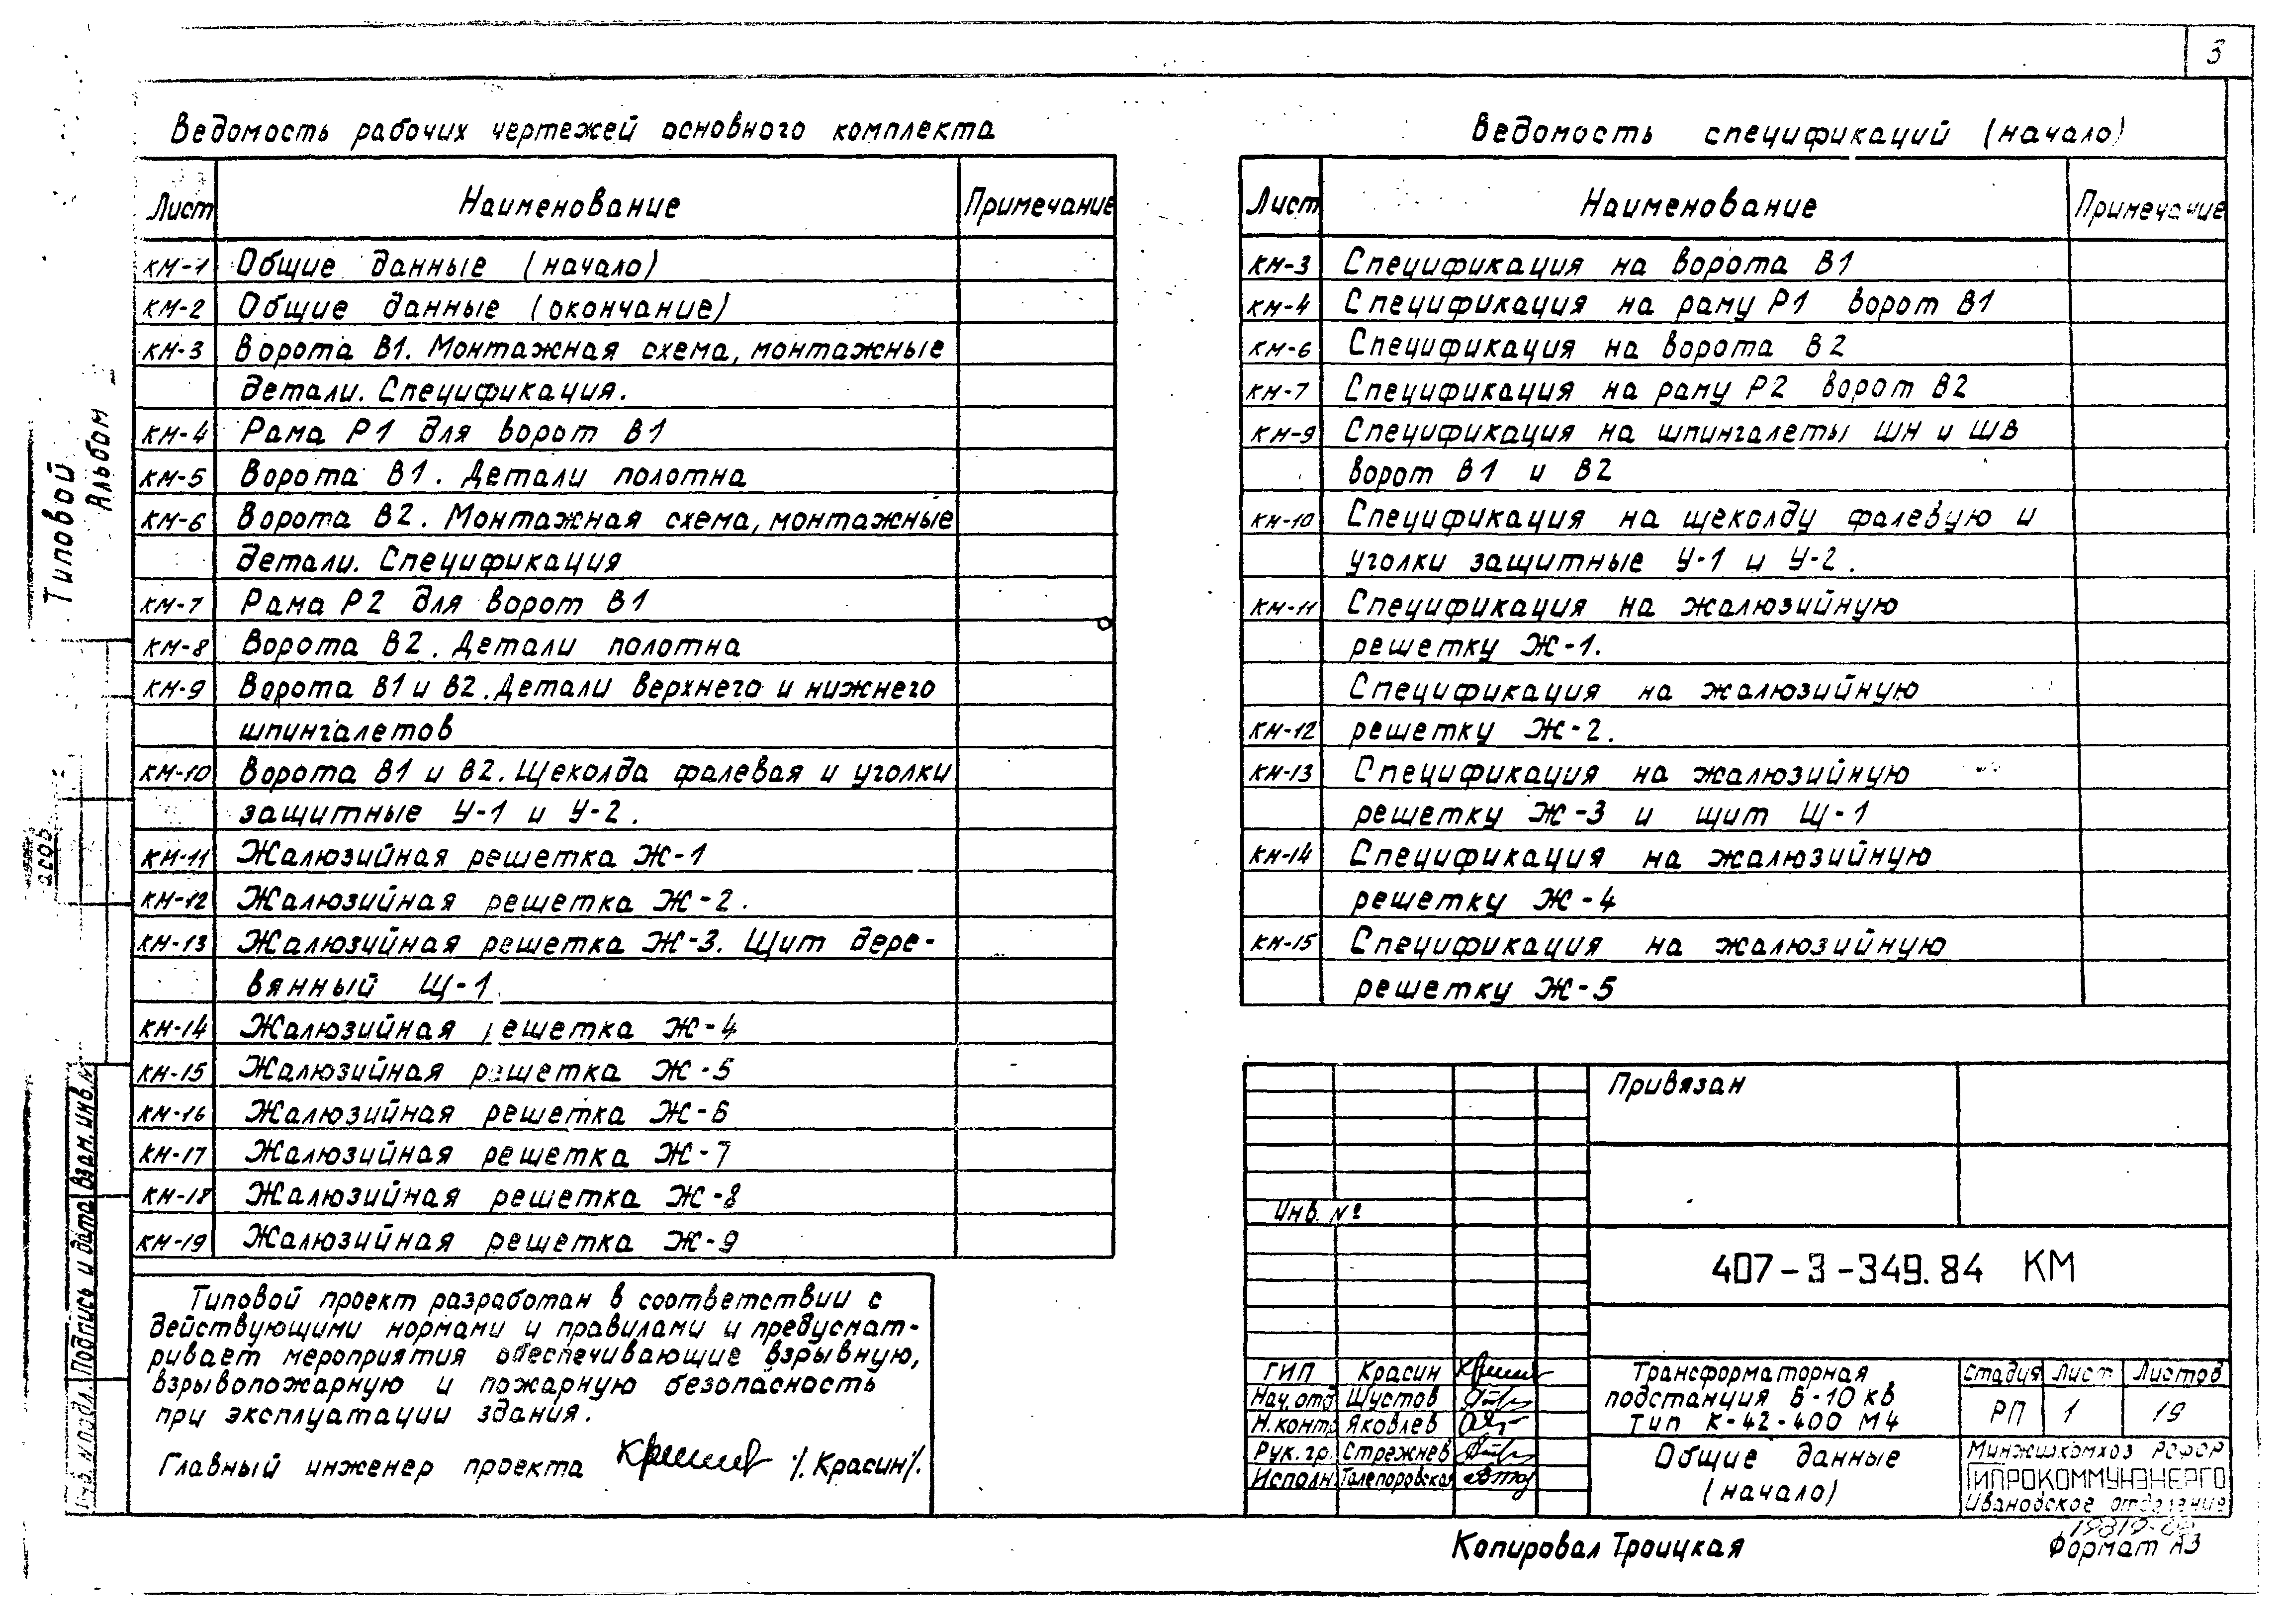 3
Ведомость рабочих чертежей основного комплекта
Лист Наименование Примечание
КМ-1 Общие данные (начало)
КМ-2 Общие данные (окончание)
КМ-3 Ворота В1. Монтажная схема, монтажные
детали. Спецификация.
КМ-4 Рама Р1 для ворот В1
КМ-5 Ворота В1. Детали полотна
КМ-6 Ворота В2. Монтажная схема, монтажные
детали. Спецификация
КМ-7 Рама Р2 для ворот В1
КМ-8 Ворота В2. Детали полотна
КМ-9 Ворота В1 и В2. Детали верхнего и нижнего
шпингалетов
КМ-10 Ворота В1 и В2. Щеколда фалевая и уголки
защитные У-1 и У-2.
КМ-11 Жалюзийная решетка Ж-1
КМ-12 Жалюзийная решетка Ж-2.
КМ-13 Жалюзийная решетка Ж-3. Щит дере-
вянный Щ-1
КМ-14 Жалюзийная решетка Ж-4
КМ-15 Жалюзийная решетка Ж-5
КМ-16 Жалюзийная решетка Ж-6
КМ-17 Жалюзийная решетка Ж-7
КМ-18 Жалюзийная решетка Ж-8
КМ-19 Жалюзийная решетка Ж-9
Типовой проект разработан в соответствии с
действующими нормами и правилами и предусмат-
ривает мероприятия обеспечивающие взрывную,
взрывопожарную и пожарную безопасность
при эксплуатации здания.
Главный инженер проекта /. Красин/.
Ведомость спецификаций (начало)
Лист Наименование Примечание
КМ-3 Спецификация на ворота В1
КМ-4 Спецификация на раму Р1 ворот В1
КМ-6 Спецификация на ворота В2
КМ-7 Спецификация на раму Р2 ворот В2
КМ-9 Спецификация на шпингалеты ШН и ШВ
ворот В1 и В2
КМ-10 Спецификация на щеколду фалевую и
уголки защитные У-1 и У-2.
КМ-11 Спецификация на жалюзийную
решетку Ж-1.
Спецификация на жалюзийную
КМ-12 решетку Ж-2.
КМ-13 Спецификация на жалюзийную
решетку Ж-3 и щит Щ-1
КМ-14 Спецификация на жалюзийную
решетку Ж-4
КМ-15 Спецификация на жалюзийную
решетку Ж-5
Привязан
Инв. №
407-3-349.84 КМ
ГИП Красин
Нач. отд Шустов
Н. контр Яковлев
Рук. гр. Стрежнев
Исполн Талепоровская
Трансформаторная
подстанция 6-10 кв
тип К-42-400 М4
Стадия Лист Листов
РП 1 19
Общие данные
(начало)
Минжилкомхоз РСФСР
ГИПРОКОММУНЭНЕРГО
Ивановское отделение
Копировал Троицкая
Формат А3
Типовой
Альбом
Взам. инв. №
Подпись и дата
Инв. № подл.